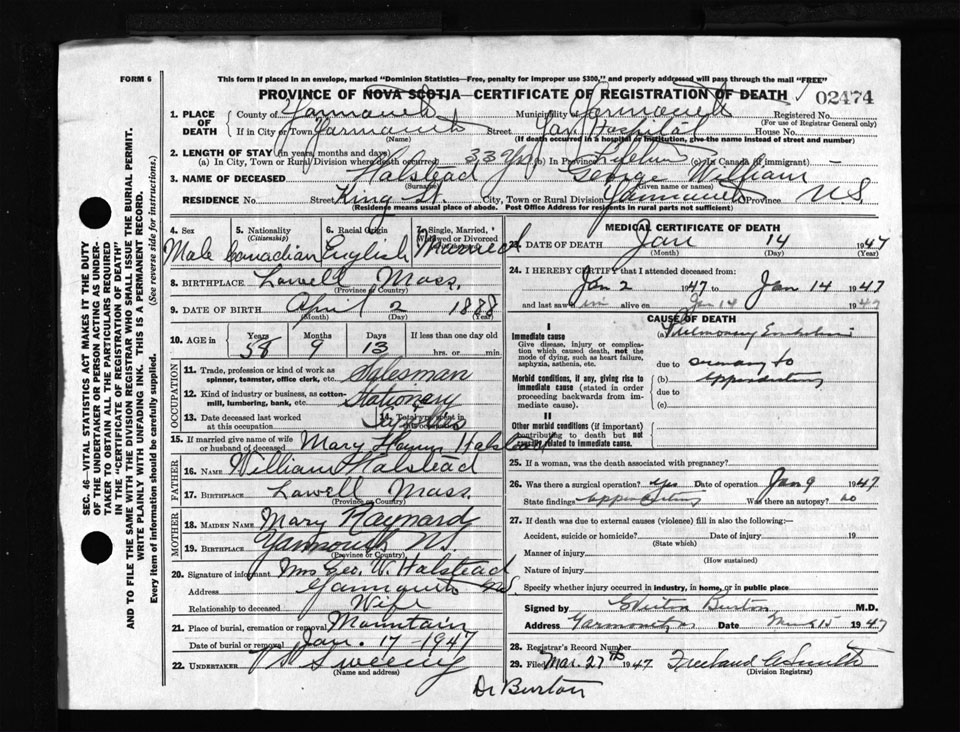 FORM 6
This form if placed in an envelope, marked "Dominion Statistics—Free, penalty for improper use $300," and properly addressed will pass through the mail "FREE"
PROVINCE OF NOVA SCOTIA—CERTIFICATE OF REGISTRATION OF DEATH
02474
1. PLACE OF DEATH
County of Yarmouth Municipality of Yarmouth Registered No.
(For use of Registrar General only)
If in City or Town Yarmouth Street Yar Hospital House No.
(Name) (If death occurred in a hospital or institution, give the name instead of street and number)
2. LENGTH OF STAY (in years, months and days)
(a) In City, Town or Rural Division where death occurred 33 yrs (b) In Province Lifetime (c) In Canada (if immigrant)
3. NAME OF DECEASED Halstead George William
(Surname) (Given name or names)
RESIDENCE No. Street King St. City, Town or Rural Division Yarmouth Province N.S.
(Residence means usual place of abode. Post Office Address for residents in rural parts not sufficient)
4. Sex Male
5. Nationality (Citizenship) Canadian
6. Racial Origin English
7. Single, Married, Widowed or Divorced Married
8. BIRTHPLACE Lowell Mass.
(Province or Country)
9. DATE OF BIRTH April 2 1888
(Month) (Day) (Year)
10. AGE in Years 58 Months 9 Days 13 If less than one day old
hrs. or min.
OCCUPATION
11. Trade, profession or kind of work as spinner, teamster, office clerk, etc. Salesman
12. Kind of industry or business, as cotton-mill, lumbering, bank, etc. Stationery
13. Date deceased last worked at this occupation
14. Total years spent in this occupation
15. If married give name of wife or husband of deceased Mary Halstead
FATHER
16. NAME William Halstead
17. BIRTHPLACE Lowell Mass.
(Province or Country)
MOTHER
18. MAIDEN NAME Mary Raynard
19. BIRTHPLACE Yarmouth N.S.
(Province or Country)
20. Signature of informant Mrs Geo. W. Halstead
Address Yarmouth NS
Relationship to deceased Wife
21. Place of burial, cremation or removal Mountain
Date of burial or removal Jan. 17-1947
22. UNDERTAKER Sweeny
(Name and address)
Dr Burton
MEDICAL CERTIFICATE OF DEATH
23. DATE OF DEATH Jan 14 1947
(Month) (Day) (Year)
24. I HEREBY CERTIFY that I attended deceased from:
Jan 2 1947 to Jan 14 1947
and last saw him alive on Jan 14 1947
CAUSE OF DEATH
I
Immediate cause
Give disease, injury or complication which caused death, not the mode of dying, such as heart failure, asphyxia, asthenia, etc.
(a) Pulmonary Embolism
due to
Morbid conditions, if any, giving rise to immediate cause (stated in order proceeding backwards from immediate cause).
(b)
due to
(c)
II
Other morbid conditions (if important) contributing to death but not causally related to immediate cause.
25. If a woman, was the death associated with pregnancy?
26. Was there a surgical operation? yes Date of operation Jan 9 1947
State findings Was there an autopsy? no
27. If death was due to external causes (violence) fill in also the following:—
Accident, suicide or homicide? Date of injury 19
(State which)
Manner of injury
(How sustained)
Nature of injury
Specify whether injury occurred in industry, in home, or in public place
Signed by Burton M.D.
Address Yarmouth Date 15 1947
28. Registrar's Record Number
29. Filed Mar. 27th 1947
(Division Registrar)
SEC. 46—VITAL STATISTICS ACT MAKES IT THE DUTY
OF THE UNDERTAKER OR PERSON ACTING AS UNDER-
TAKER TO OBTAIN ALL THE PARTICULARS REQUIRED
IN THE "CERTIFICATE OF REGISTRATION OF DEATH"
AND TO FILE THE SAME WITH THE DIVISION REGISTRAR WHO SHALL ISSUE THE BURIAL PERMIT.
WRITE PLAINLY WITH UNFADING INK. THIS IS A PERMANENT RECORD.
Every item of information should be carefully supplied. (See reverse side for instructions.)